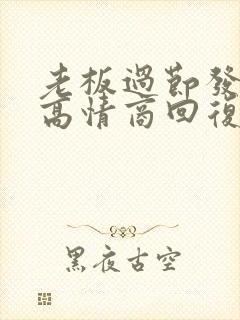 老板過節發
高情商回復
黑夜古空